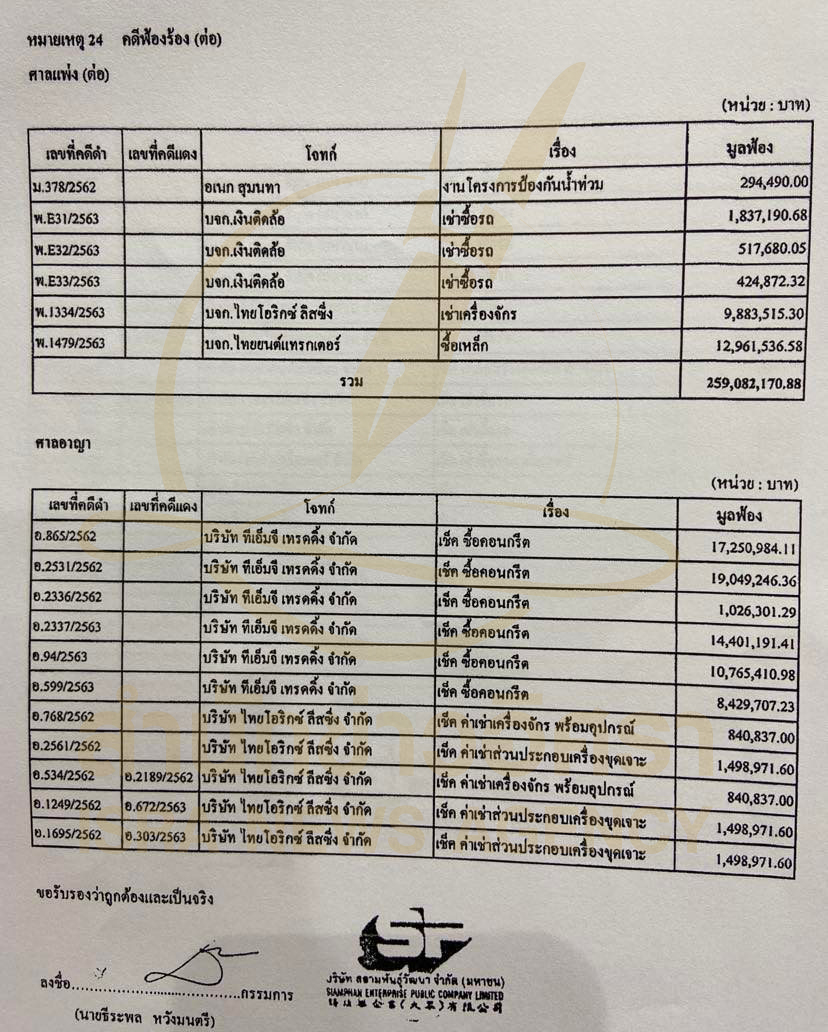 หมายเหตุ 24 คดีฟ้องร้อง (ต่อ)
ศาลแพ่ง (ต่อ)
(หน่วย : บาท)
เลขที่คดีดำ เลขที่คดีแดง โจทก์ เรื่อง มูลฟ้อง
ม.378/2562 อเนก สุมนทา งานโครงการป้องกันน้ำท่วม 294,490.00
พ.E31/2563 บจก.เงินติดล้อ เช่าซื้อรถ 1,837,190.68
พ.E32/2563 บจก.เงินติดล้อ เช่าซื้อรถ 517,680.05
พ.E33/2563 บจก.เงินติดล้อ เช่าซื้อรถ 424,872.32
พ.1334/2563 บจก.ไทยโอริกซ์ ลิสซิ่ง เช่าเครื่องจักร 9,883,515.30
พ.1479/2563 บจก.ไทยยนต์แทรกเตอร์ ซื้อเหล็ก 12,961,536.58
รวม 259,082,170.88
ศาลอาญา
(หน่วย : บาท)
เลขที่คดีดำ เลขที่คดีแดง โจทก์ เรื่อง มูลฟ้อง
อ.865/2562 บริษัท ทีเอ็มจี เทรดดิ้ง จำกัด เช็ค ซื้อคอนกรีต 17,250,984.11
อ.2531/2562 บริษัท ทีเอ็มจี เทรดดิ้ง จำกัด เช็ค ซื้อคอนกรีต 19,049,246.36
อ.2336/2562 บริษัท ทีเอ็มจี เทรดดิ้ง จำกัด เช็ค ซื้อคอนกรีต 1,026,301.29
อ.2337/2563 บริษัท ทีเอ็มจี เทรดดิ้ง จำกัด เช็ค ซื้อคอนกรีต 14,401,191.41
อ.94/2563 บริษัท ทีเอ็มจี เทรดดิ้ง จำกัด เช็ค ซื้อคอนกรีต 10,765,410.98
อ.599/2563 บริษัท ทีเอ็มจี เทรดดิ้ง จำกัด เช็ค ซื้อคอนกรีต 8,429,707.23
อ.768/2562 บริษัท ไทยโอริกซ์ ลีสซิ่ง จำกัด เช็ค ค่าเช่าเครื่องจักร พร้อมอุปกรณ์ 840,837.00
อ.2561/2562 บริษัท ไทยโอริกซ์ ลีสซิ่ง จำกัด เช็ค ค่าเช่าส่วนประกอบเครื่องขุดเจาะ 1,498,971.60
อ.534/2562 อ.2189/2562 บริษัท ไทยโอริกซ์ ลีสซิ่ง จำกัด เช็ค ค่าเช่าเครื่องจักร พร้อมอุปกรณ์ 840,837.00
อ.1249/2562 อ.672/2563 บริษัท ไทยโอริกซ์ ลีสซิ่ง จำกัด เช็ค ค่าเช่าส่วนประกอบเครื่องขุดเจาะ 1,498,971.60
อ.1695/2562 อ.303/2563 บริษัท ไทยโอริกซ์ ลีสซิ่ง จำกัด เช็ค ค่าเช่าส่วนประกอบเครื่องขุดเจาะ 1,498,971.60
ขอรับรองว่าถูกต้องและเป็นจริง
ลงชื่อ..............................กรรมการ
(นายธีระพล หวังมนตรี)
บริษัท สยามพันธุ์วัฒนา จำกัด (มหาชน)
SIAMPHAN ENTERPRISE PUBLIC COMPANY LIMITED